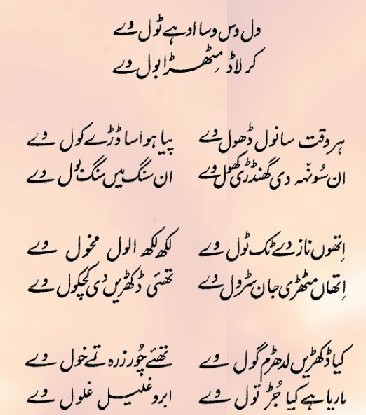 دل دس وسا ادہے ٹول وے
کر لاڈ مٹھڑا بول وے
ہر وقت سانول ڈھول وے پیا ہوا ساڈڑے کول وے
ان سُونہہ دی گھنڈڑی کھول وے ان سنگ میں سنگ بول وے
اِتھوں ناز دے ٹک ٹول وے لکھ لکھ الول مخول وے
اِتھاں مٹھڑی جان سڑول وے تھئی ڈکھڑیں دی کچکول وے
کیا ڈکھڑیں لدھڑم گول وے تھئے چُور زرہ تے خول وے
ماریا ہے کیا جُڑ تول وے ابرو غلیل غلول وے